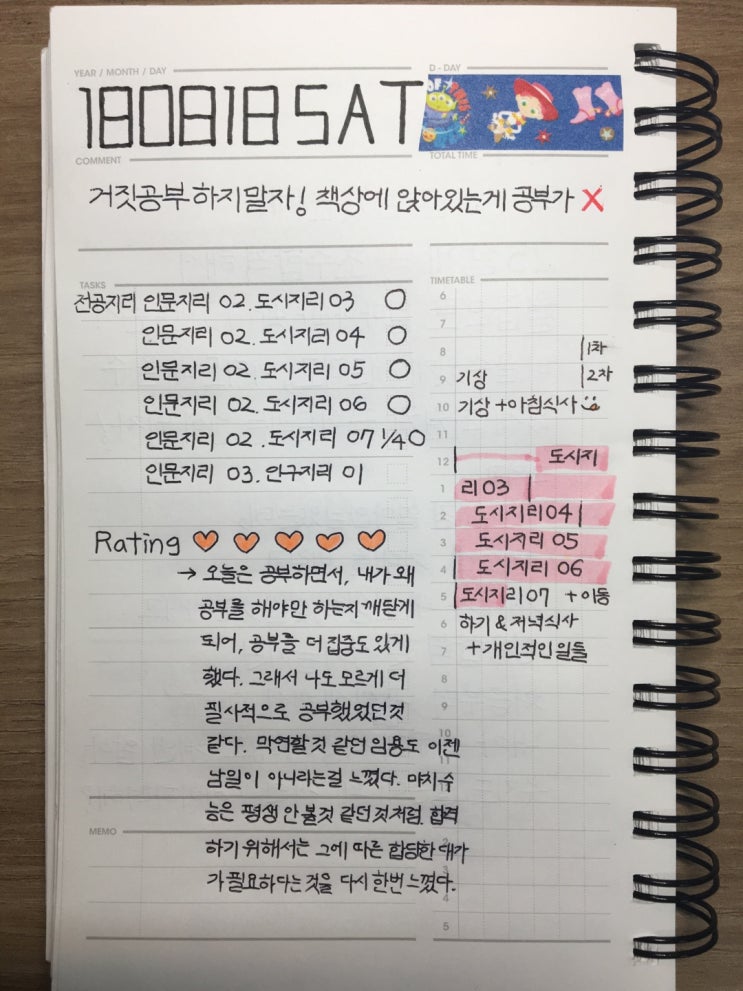 YEAR / MONTH / DAY
D-DAY
180818 SAT
COMMENT
TOTAL TIME
거짓공부 하지말자! 책상에 앉아있는게 공부가 X
TASKS
전공지리 인문지리 02. 도시지리 03 O
인문지리 02. 도시지리 04 O
인문지리 02. 도시지리 05 O
인문지리 02. 도시지리 06 O
인문지리 02. 도시지리 07 1/4 O
인문지리 03. 인구지리 01
Rating
→ 오늘은 공부하면서, 내가 왜
공부를 해야만 하는지 깨닫게
되어, 공부를 더 집중도있게
했다. 그래서 나도 모르게 더
필사적으로 공부했었던것
같다. 막연할것 같던 임용도 이젠
남일이 아니라는걸 느꼈다. 마치 수
능은 평생 안볼것 같던것처럼. 합격
MEMO
하기 위해서는 그에 따른 합당한 대가
가 필요하다는 것을 다시 한번 느꼈다.
TIMETABLE
6
7
8 1차
9 기상 2차
10 기상 + 아침식사
11
12 도시지
1 리 03
2 도시지리 04
3 도시지리 05
4 도시지리 06
5 도시지리 07 + 이동
6 하기 & 저녁식사
7 + 개인적인 일들
8
9
10
11
12
1
2
3
4
5